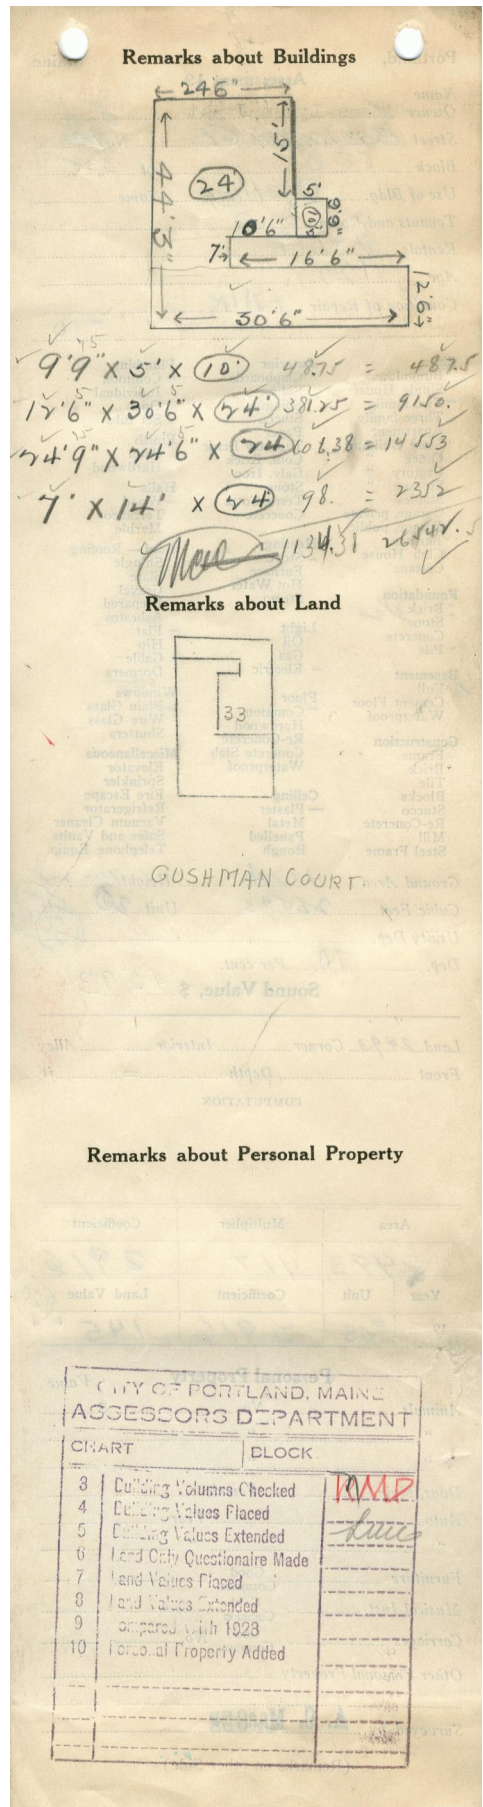 Remarks about Buildings
24'6"
44'3"
24'
15'
5'
10'
9'9"
10'6"
7'
16'6"
12'6"
30'6"
9'9" X 5' X 10' 48.75 = 487.5
12'6" X 30'6" X 24' 381.25 = 9150.
24'9" X 24'6" X 24 606.38 = 14553
7' X 14' X 24 98. = 2352
1134.38 26542.5
Remarks about Land
33
CUSHMAN COURT.
Remarks about Personal Property
CITY OF PORTLAND, MAINE
ASSESSORS DEPARTMENT
CHART BLOCK
3 Building Volumns Checked
4 Building Values Placed
5 Building Values Extended
6 Land Only Questionaire Made
7 Land Values Placed
8 Land Values Extended
9 ompared With 1923
10 Personal Property Added